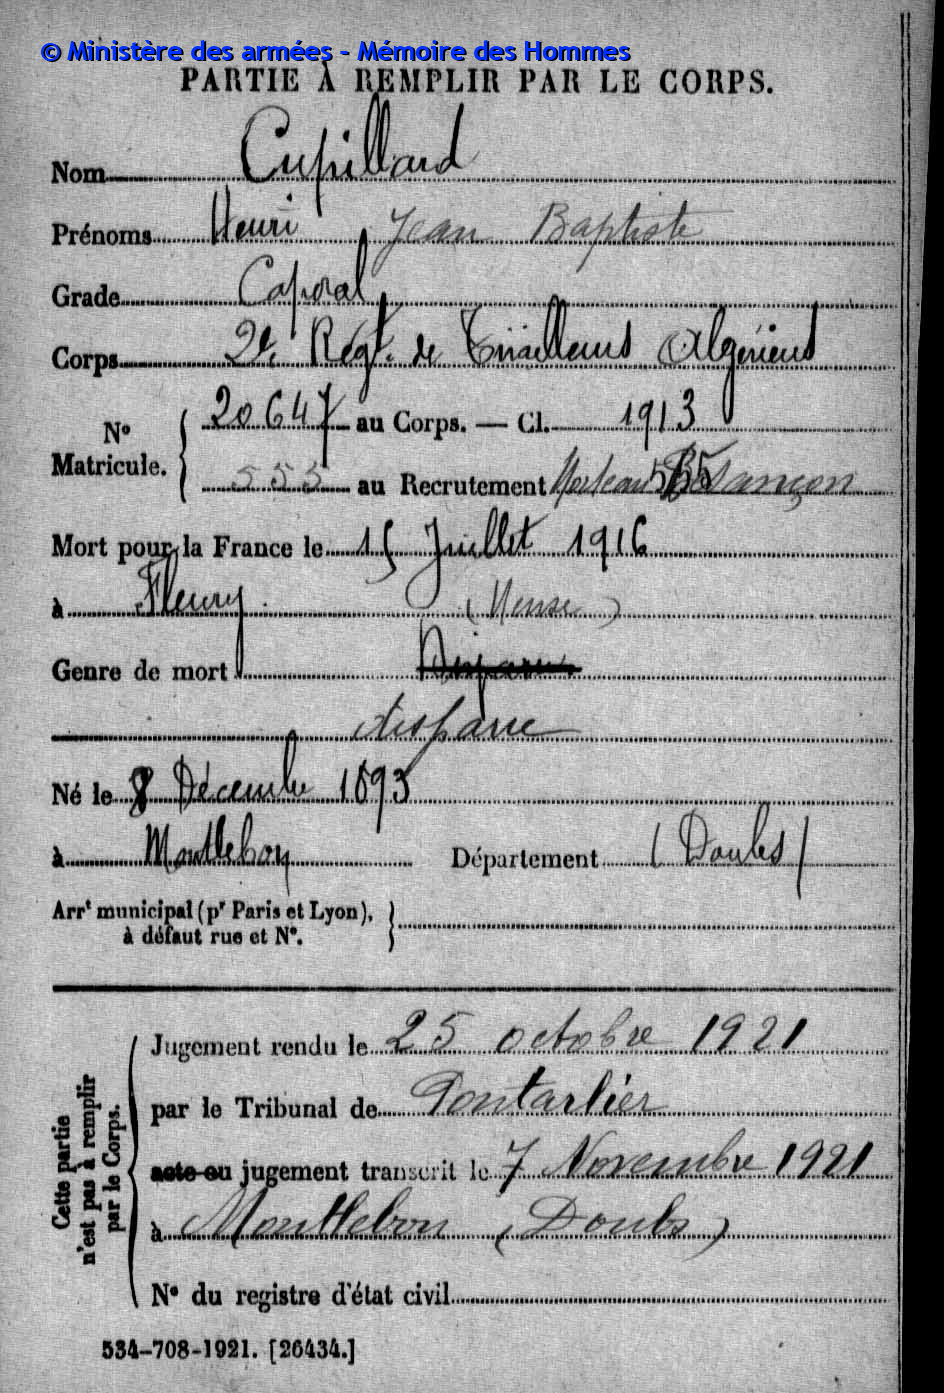 © Ministère des armées - Mémoire des Hommes
PARTIE À REMPLIR PAR LE CORPS.
Nom Cupillard
Prénoms Henri Jean Baptiste
Grade Caporal
Corps 2e Régt. de Tirailleurs Algériens
No 20647 au Corps. — Cl. 1913
Matricule. 555 au Recrutement Besançon
Mort pour la France le 15 Juillet 1916
à Fleury (Meuse)
Genre de mort Disparu
disparu
Né le 8 Décembre 1893
à Montlebon Département (Doubs)
Arrt municipal (pr Paris et Lyon),
à défaut rue et No.
Cette partie
n'est pas à remplir
par le Corps.
Jugement rendu le 25 octobre 1921
par le Tribunal de Pontarlier
acte ou jugement transcrit le 7 Novembre 1921
à Montlebon (Doubs)
No du registre d'état civil
534-708-1921. [26434.]